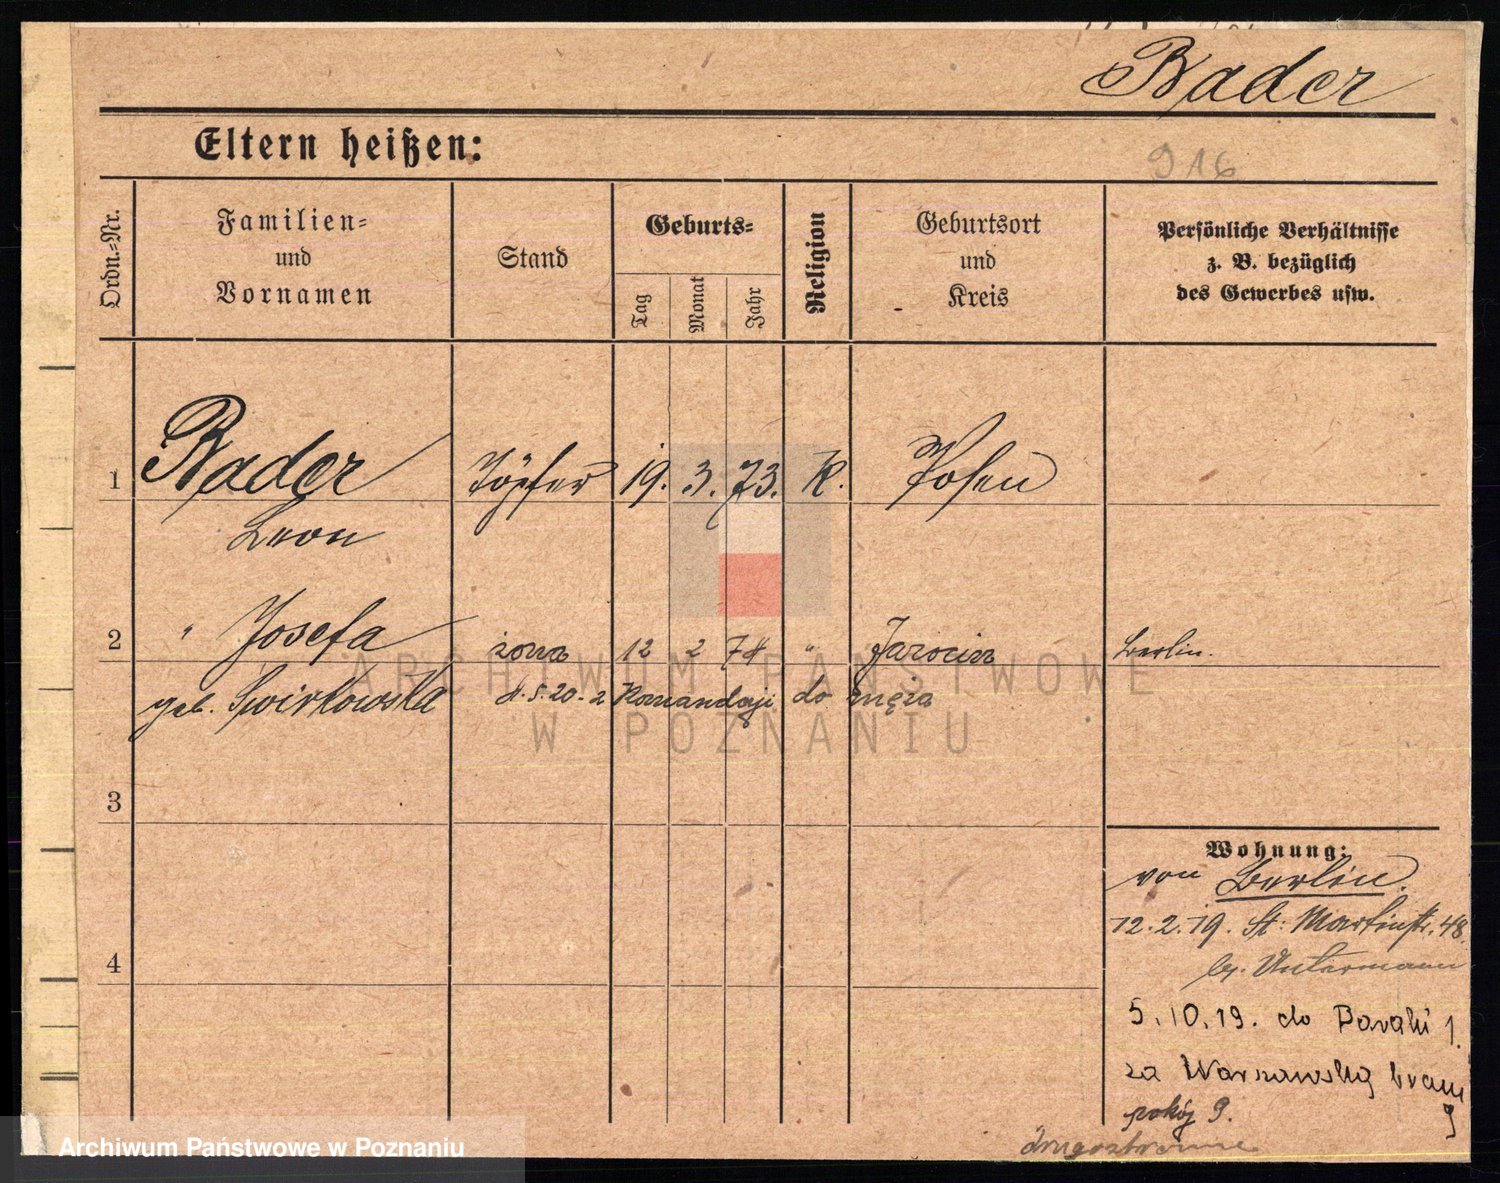 Bader
Eltern heißen:
916
Ordn.-Nr.
Familien-
und
Vornamen
Stand
Geburts-
Tag
Monat
Jahr
Religion
Geburtsort
und
Kreis
Persönliche Verhältnisse
z. B. bezüglich
des Gewerbes usw.
1 Bader Töpfer 19. 3. 73. K. Posen
Leon
2 " Josefa żona 12 2 74 " Jarocin Berlin.
geb. Świrkowska 4.5.20. z Komandaji do męża
3
4
Wohnung:
von Berlin.
12.2.19. St. Martinstr. 48.
bei Untermann
5.10.19. do Baraki 1.
za Warszawską bramą
pokój 9.
ARCHIWUM PAŃSTWOWE
W POZNANIU
Archiwum Państwowe w Poznaniu